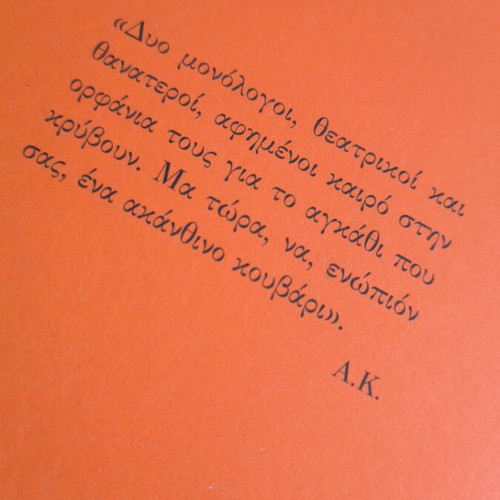 «Δυο μονόλογοι, θεατρικοί και
θανατεροί, αφημένοι καιρό στην
ορφάνια τους για το αγκάθι που
κρύβουν. Μα τώρα, να, ενώπιόν
σας, ένα ακάνθινο κουβάρι».
Α.Κ.